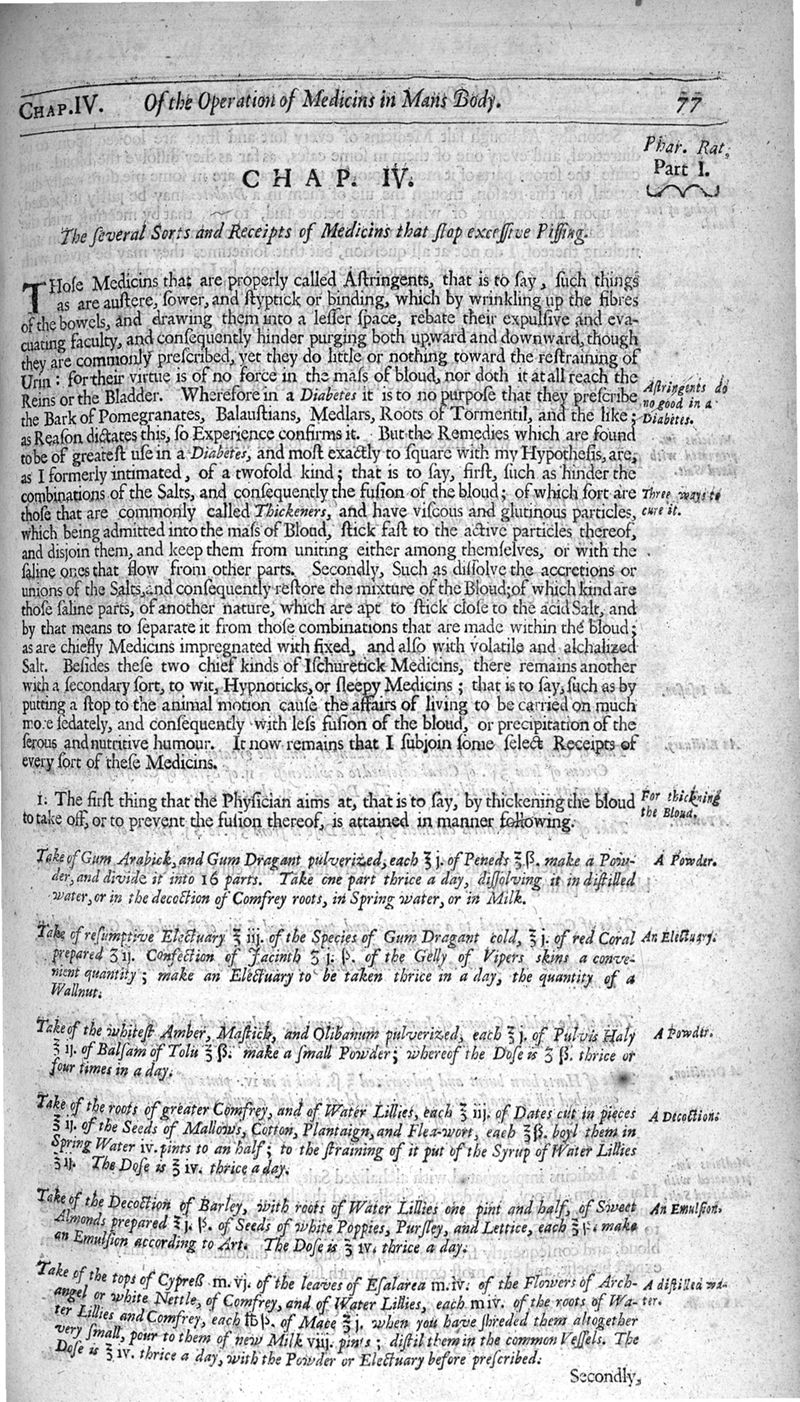 CHAP.IV. Of the Operation of Medicins in Mans Body. 77
Phar. Rat.
Part I.
CHAP. IV.
The ſeveral Sorts and Receipts of Medicins that ſtop exceſſive Piſſing.
THoſe Medicins that are properly called Aſtringents, that is to ſay, ſuch things
as are auſtere, ſower, and ſtyptick or binding, which by wrinkling up the fibres
of the bowels, and drawing them into a leſſer ſpace, rebate their expulſive and eva-
cuating faculty, and conſequently hinder purging both upward and downward, though
they are commonly preſcribed, yet they do little or nothing toward the reſtraining of
Urin: for their virtue is of no force in the maſs of bloud, nor doth it at all reach the
Reins or the Bladder. Wherefore in a Diabetes it is to no purpoſe that they preſcribe
the Bark of Pomegranates, Balauſtians, Medlars, Roots of Tormentil, and the like;
as Reaſon dictates this, ſo Experience confirms it. But the Remedies which are found
to be of greateſt uſe in a Diabetes, and moſt exactly to ſquare with my Hypotheſis, are,
as I formerly intimated, of a twofold kind; that is to ſay, firſt, ſuch as hinder the
combinations of the Salts, and conſequently the fuſion of the bloud; of which ſort are
thoſe that are commonly called Thickeners, and have viſcous and glutinous particles,
which being admitted into the maſs of Bloud, ſtick faſt to the active particles thereof,
and disjoin them, and keep them from uniting either among themſelves, or with the
ſaline ones that flow from other parts. Secondly, Such as diſſolve the accretions or
unions of the Salts, and conſequently reſtore the mixture of the Bloud; of which kind are
thoſe ſaline parts, of another nature, which are apt to ſtick cloſe to the acid Salt, and
by that means to ſeparate it from thoſe combinations that are made within the bloud;
as are chiefly Medicins impregnated with fixed, and alſo with volatile and alchalized
Salt. Beſides theſe two chief kinds of Iſchuretick Medicins, there remains another
with a ſecondary ſort, to wit, Hypnoticks, or ſleepy Medicins; that is to ſay, ſuch as by
putting a ſtop to the animal motion cauſe the affairs of living to be carried on much
more ſedately, and conſequently with leſs fuſion of the bloud, or precipitation of the
ſerous and nutritive humour. It now remains that I ſubjoin ſome ſelect Receipts of
every ſort of theſe Medicins.
Aſtringents do
no good in a
Diabetes.
Three ways to
cure it.
1. The firſt thing that the Phyſician aims at, that is to ſay, by thickening the bloud
to take off, or to prevent the fuſion thereof, is attained in manner following.
For thickning
the Bloud.
Take of Gum Arabick, and Gum Dragant pulverized, each ℥ j. of Peneds ℥ ß. make a Pow-
der, and divide it into 16 parts. Take one part thrice a day, diſſolving it in diſtilled
water, or in the decoction of Comfrey roots, in Spring water, or in Milk.
A Powder.
Take of reſumptive Electuary ℥ iij. of the Species of Gum Dragant cold, ℥ j. of red Coral
prepared ʒ ij. Confection of Jacinth ʒ j. ß. of the Gelly of Vipers skins a conve-
nient quantity; make an Electuary to be taken thrice in a day, the quantity of a
Wallnut.
An Electuary.
Take of the whiteſt Amber, Maſtich, and Olibanum pulverized, each ℥ j. of Pulvis Haly
℥ ij. of Balſam of Tolu ℥ ß. make a ſmall Powder; whereof the Doſe is ʒ ß. thrice or
four times in a day.
A Powder.
Take of the roots of greater Comfrey, and of Water Lillies, each ℥ iij. of Dates cut in pieces
℥ ij. of the Seeds of Mallows, Cotton, Plantaign, and Flea-wort, each ℥ ß. boyl them in
Spring Water iv. pints to an half; to the ſtraining of it put of the Syrup of Water Lillies
℥ ij. The Doſe is ℥ iv. thrice a day.
A Decoction.
Take of the Decoction of Barley, with roots of Water Lillies one pint and half, of Sweet
Almonds prepared ℥ j. ß. of Seeds of white Poppies, Purſley, and Lettice, each ℥ ß. make
an Emulſion according to Art. The Doſe is ℥ iv. thrice a day.
An Emulſion.
Take of the tops of Cypreß m. vj. of the leaves of Eſalarea m. iv. of the Flowers of Arch-
angel or white Nettle, of Comfrey, and of Water Lillies, each m iv. of the roots of Wa-
ter Lillies and Comfrey, each ℔ ß. of Mace ℥ j. when you have ſhreded them altogether
very ſmall, pour to them of new Milk viij. pints; diſtil them in the common Veſſels. The
Doſe is ℥ iv. thrice a day, with the Powder or Electuary before preſcribed.
A diſtilled wa-
ter.
Secondly,